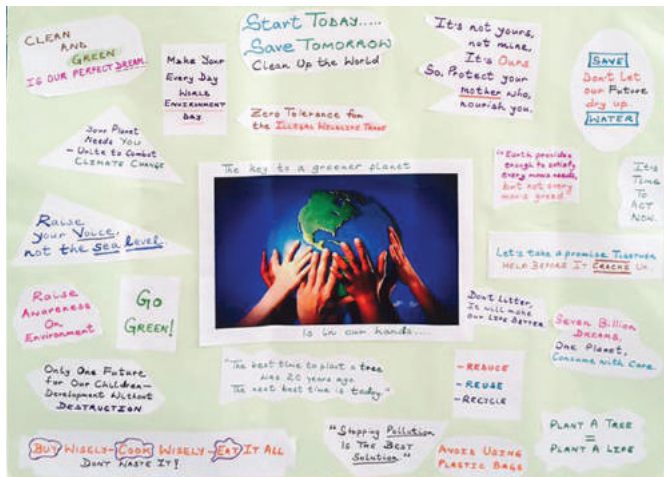 CLEAN
AND
GREEN
IS OUR PERFECT DREAM.
Make Your
Every Day
WORLD
ENVIRONMENT
DAY
START TODAY.....
SAVE TOMORROW
Clean Up the World
It's not yours,
not mine,
It's Ours
So, Protect your
mother who,
nourish you.
SAVE
Don't Let
our Future
dry up.
WATER
Your Planet
Needs You
- Unite to Combat
CLIMATE CHANGE
Zero Tolerance for
the ILLEGAL WILDLIFE TRADE
"Earth provides
enough to satisfy
every mans needs,
but not every
man's greed"
IT'S
TIME
TO
ACT
NOW.
The key to a greener planet
Is in our hands....
Raise
your Voice,
not the sea level.
Let's take a promise TOGETHER
HELP BEFORE IT CRACKS UP.
Raise
Awareness
On
Environment
GO
GREEN!
Don't Litter,
It will make
our LIFE BETTER.
SEVEN BILLION
DREAMS,
ONE PLANET,
Consume with Care
Only One Future
for Our Children-
Development Without
DESTRUCTION
"The best time to plant a tree
was 20 years ago
The next best time is today."
- REDUCE
- REUSE
- RECYCLE
BUY WISELY- COOK WISELY - EAT IT ALL
DONT WASTE IT!
"Stopping Pollution
IS THE BEST
Solution"
AVOID USING
PLASTIC BAGS
PLANT A TREE
=
PLANT A LIFE